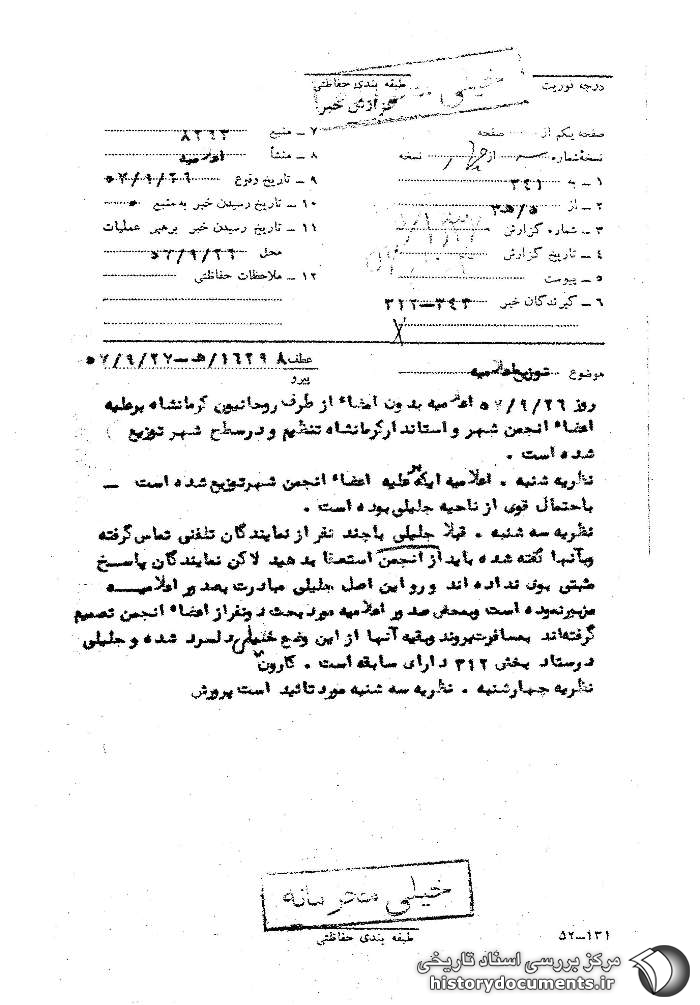 خیلی
طبقه بندی حفاظتی
گزارش خبر
درجه فوریت
صفحه یکم از صفحه
نسخه شماره از چهار نسخه
۱ ـ به ۳۴۱
۲ ـ از ۵/ه۳
۳ ـ شماره گزارش
۴ ـ تاریخ گزارش
۵ ـ پیوست
۶ ـ گیرندگان خبر ۳۴۳ـ۳۱۲
۷ ـ منبع ۸۲۶۳
۸ ـ منشأ اعلامیه
۹ ـ تاریخ وقوع ۵۷/۹/۲۶
۱۰ ـ تاریخ رسیدن خبر به منبع
۱۱ ـ تاریخ رسیدن خبر برهبر عملیات
محل ۵۷/۹/۲۶
۱۲ ـ ملاحظات حفاظتی
موضوع توزیع اعلامیه
عطف ۱۶۲۹۸/ه ـ ۵۷/۹/۲۷
پیرو
روز ۵۷/۹/۲۶ اعلامیه بدون امضاء از طرف روحانیون کرمانشاه برعلیه
اعضاء انجمن شهر و استاندار کرمانشاه تنظیم و در سطح شهر توزیع
شده است .
نظریه شنبه . اعلامیه ایکه بر علیه اعضاء انجمن شهر توزیع شده است ـ
باحتمال قوی از ناحیه جلیلی بوده است .
نظریه سه شنبه . قبلا جلیلی باچند نفر از نمایندگان تلفنی تماس گرفته
وبآنها گفته شده باید از انجمن استعفا بدهید لاکن نمایندگان پاسخ
مثبتی بوی نداده اند و رو این اصل جلیلی مبادرت بصدور اعلامیـــه
مزبور نموده است وبمحض صدور اعلامیه مورد بحث دونفر از اعضاء انجمن تصمیم
گرفته‌اند بمسافرت بروند وبقیه آنها از این وضع خیلی دلسرد شده و جلیلی
در ستاد بخش ۳۱۲ دارای سابقه است . کارون
نظریه چهارشنبه . نظریه سه شنبه مورد تائید است پرورش
خیلی محرمانه
طبقه بندی حفاظتی
۵۲ـ۱۳۱
مرکز بررسی اسناد تاریخی
historydocuments.ir